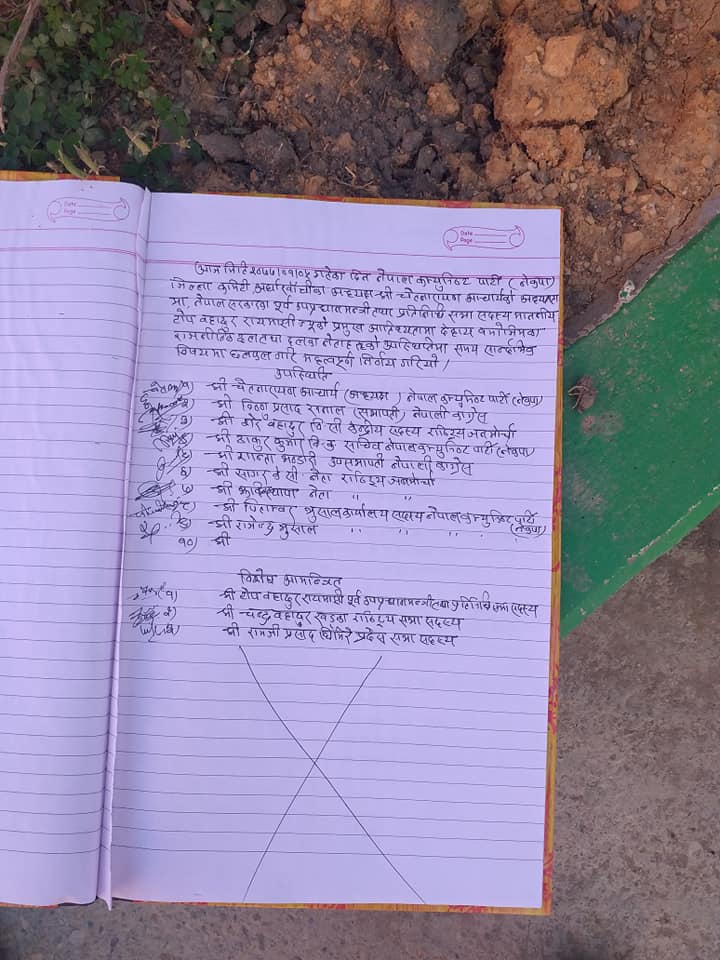 Date
Page
Date
Page
आज मिति २०७७।०१।०५ गतेका दिन नेपाल कम्युनिष्ट पार्टी (नेकपा)
जिल्ला कमिटी अर्घाखाँचीका अध्यक्ष श्री चेतनारायण आचार्यको अध्यक्षता
मा, नेपाल सरकारका पूर्व उपप्रधानमन्त्री तथा प्रतिनिधि सभा सदस्य माननीय
टोप बहादुर रायमाझी ज्यूको प्रमुख आतिथ्यतामा देहाय बमोजिमका
राजनीतिक दल तथा दलका नेताहरूको उपस्थितिमा समय सान्दर्भिक
विषयमा छलफल गरि महत्वपूर्ण निर्णय गरियो।
उपस्थिति
१) श्री चेतनारायण आचार्य (अध्यक्ष) नेपाल कम्युनिष्ट पार्टी (नेकपा)
२) श्री विष्णु प्रसाद (सभापती) नेपाली काग्रेस
३) श्री डोर बहादुर वि सी केन्द्रीय सदस्य राष्ट्रिय जनमोर्चा
श्री ठाकुर कुमार बि.क सचिव नेपाल कम्युनिष्ट पार्टी (नेकपा)
श्री शान्ता भण्डारी उपसभापती नेपाली काग्रेस
६) श्री सागर के सी नेता राष्ट्रिय जनमोर्चा
७) श्री थापा नेता " "
८) श्री पिताम्बर भुसाल कार्यालय सदस्य नेपाल कम्युनिष्ट पार्टी (नेकपा)
९) श्री राजेन्द्र भुसाल " " " "
१०) श्री
विशेष आमन्त्रित
१) श्री टोप बहादुर रायमाझी पूर्व उपप्रधानमन्त्री तथा प्रतिनिधि सभा सदस्य
२) श्री चन्द्र बहादुर खड्का राष्ट्रिय सभा सदस्य
३) श्री रामजी प्रसाद घिमिरे प्रदेश सभा सदस्य